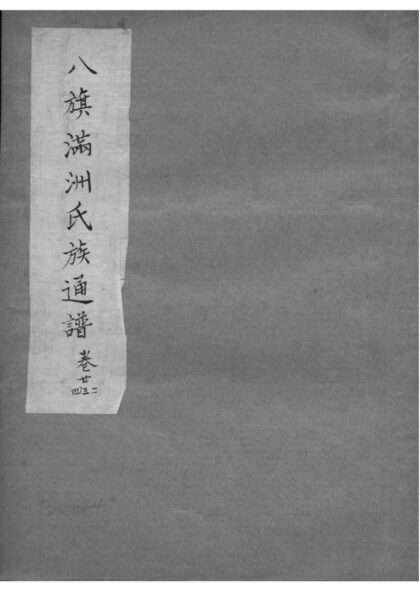 八旗滿洲氏族通譜 卷廿二三四